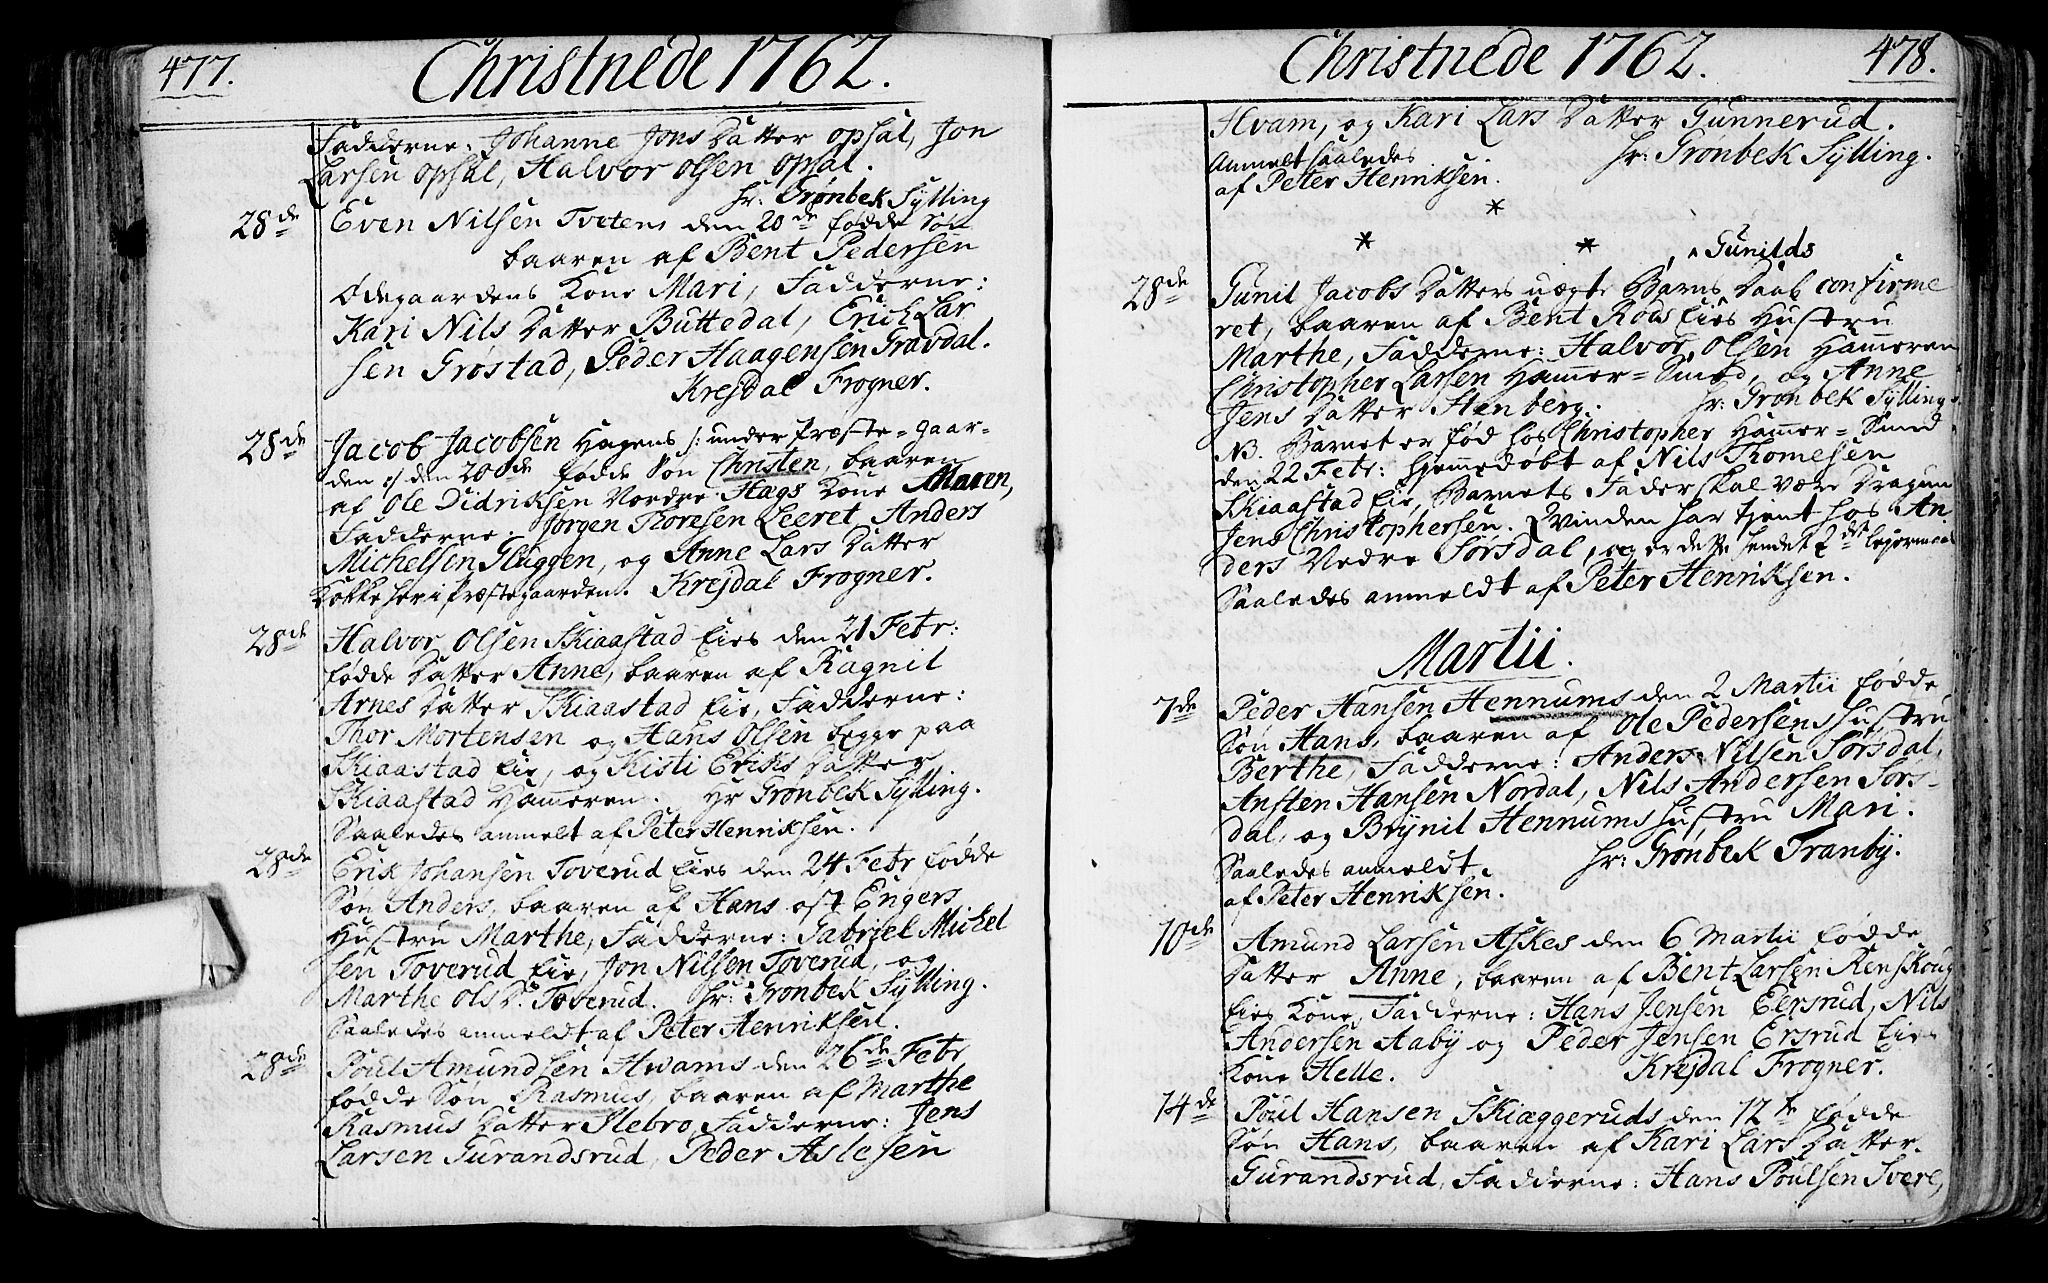 477.
Christnede 1762.
Fadderne: Johanne Jons Datter Opsal, Jon
Larsen Opsal, Halvor Olsen Opsal.
hr: Grønbek Sylling
28de Even Nilsen Tvetens den 20de fødde Søn
baaren af Bent Pedersen
Ødegaardens Kone Mari, Fadderne:
Kari Nils Datter Buttedal, Erich Lar
sen Grøstad, Peder Haagensen Gravdal.
Krejdal Frogner.
28de Jacob Jacobsen Hagens /: under Præste-gaar-
den :/ den 20de fødde Søn Christen, baaren
af Ole Didriksen Nordre Hags Kone Maren,
Fadderne, Jørgen Thoresen Leeret Anders
Michelsen Gluggen, og Anne Lars Datter
Kokke her i Præstegaarden. Krejdal Frogner.
28de Halvor Olsen Skiaastad Eies den 21 Febr:
fødde Datter Anne, baaren af Ragnil
Arnes Datter Skiaastad Eie, Fadderne:
Thor Mortensen og Hans Olsen begge paa
Skiaastad Eie, og Kisti Eriks Datter
Skiaastad Hameren. Hr Grønbek Sylling.
Saaledes anmelt af Peter Henriksen.
28de Erik Johansen Toverud Eies den 24 Febr fødde
Søn Anders, baaren af Hans Øst Engers
Hustru Marthe, Fadderne: Gabriel Michel
sen Toverud Eie, Jon Nilsen Toverud, og
Marthe Ols Dr. Toverud. hr: Grønbek Sylling.
Saaledes anmeldt af Peter Henriksen.
28de Poul Amundsen Hvams den 26de Febr
fødde Søn Rasmus, baaren af Marthe
Rasmus Datter Slebro, Fadderne: Jens
Larsen Gurandsrud, Peder Aslesen
Christnede 1762.
478.
Hvam, og Kari Lars Datter Gunnerud.
Anmelt saaledes hr: Grønbek Sylling.
af Peter Henriksen.
*
* *
Gunilds
28de Gunil Jacobs Datters uægte Barns Daab confirme
ret, baaren af Bent Røds Eies Hustru
Marthe, Fadderne: Halvor Olsen Hameren
Christopher Larsen Hamer=Smed, og Anne
Jens Datter Stenberg. hr: Grønbek Sylling.
NB. Barnet er fød hos Christopher Hamer=Smed
den 22 Febr: hjemedøbt af Nils Thomesen
Skiaastad Eie, Barnets Fader skal være Dragun
Jens Christophersen. Qvinden har tjent hos An
ders Nedre Sørsdal, og er dette hendes 2det lejermaal
Saaledes anmeldt af Peter Henriksen.
Martii.
7de Peder Hansen Hennums den 2 Martii fødde
Søn Hans, baaren af Ole Pedersens Hustru
Berthe, Fadderne: Anders Nilsen Sørsdal,
Ansten Hansen Nordal, Nils Andersen Sørs-
dal, og Brynil Hennums Hustru Mari.
Saaledes anmeldt hr: Grønbek Tranby.
af Peter Henriksen.
10de Amund Larsen Askes den 6 Martii fødde
Datter Anne, baaren af Bent Larsen Renskoug
Eies Kone, Fadderne: Hans Jensen Eersrud, Nils
Andersen Aaby og Peder Jensen Ersrud Eies
Kone Helle. Krejdal Frogner.
14de Poul Hansen Skiæggeruds den 12te fødde
Søn Hans, baaren af Kari Lars Datter
Gurandsrud, Fadderne: Hans Poulsen Svere,